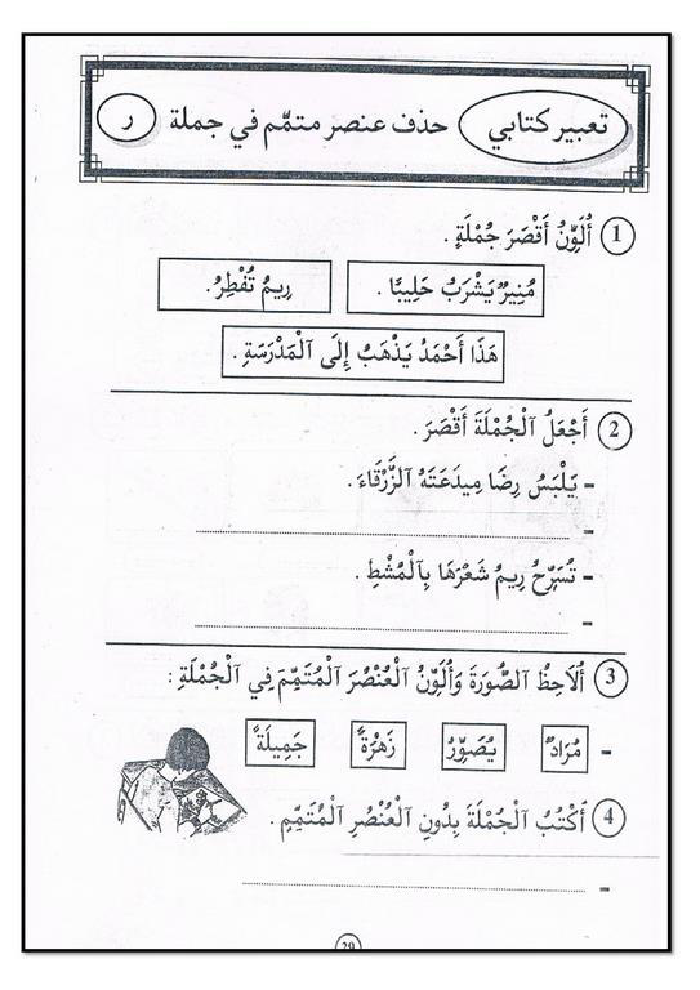 تعبير كتابي حذف عنصر متمّم في جملة ر
1 أُلَوِّنُ أَقْصَرَ جُمْلَةٍ .
مُنِيرٌ يَشْرَبُ حَلِيبًا . رِيمُ تُفْطِرُ.
هَذَا أَحْمَدُ يَذْهَبُ إِلَى ٱلْمَدْرَسَةِ .
2 أَجْعَلُ ٱلْجُمْلَةَ أَقْصَرَ .
- يَلْبَسُ رِضَا مِيدَعَتَهُ ٱلزَّرْقَاءَ .
-
- تُسَرِّحُ رِيمُ شَعْرَهَا بِٱلْمُشْطِ .
-
3 أُلاَحِظُ ٱلصُّورَةَ وَأُلَوِّنُ ٱلْعُنْصُرَ ٱلْمُتَمِّمَ فِي ٱلْجُمْلَةِ :
- مُرَادٌ يُصَوِّرُ زَهْرَةً جَمِيلَةً
4 أَكْتُبُ ٱلْجُمْلَةَ بِدُونِ ٱلْعُنْصُرِ ٱلْمُتَمِّمِ .
-